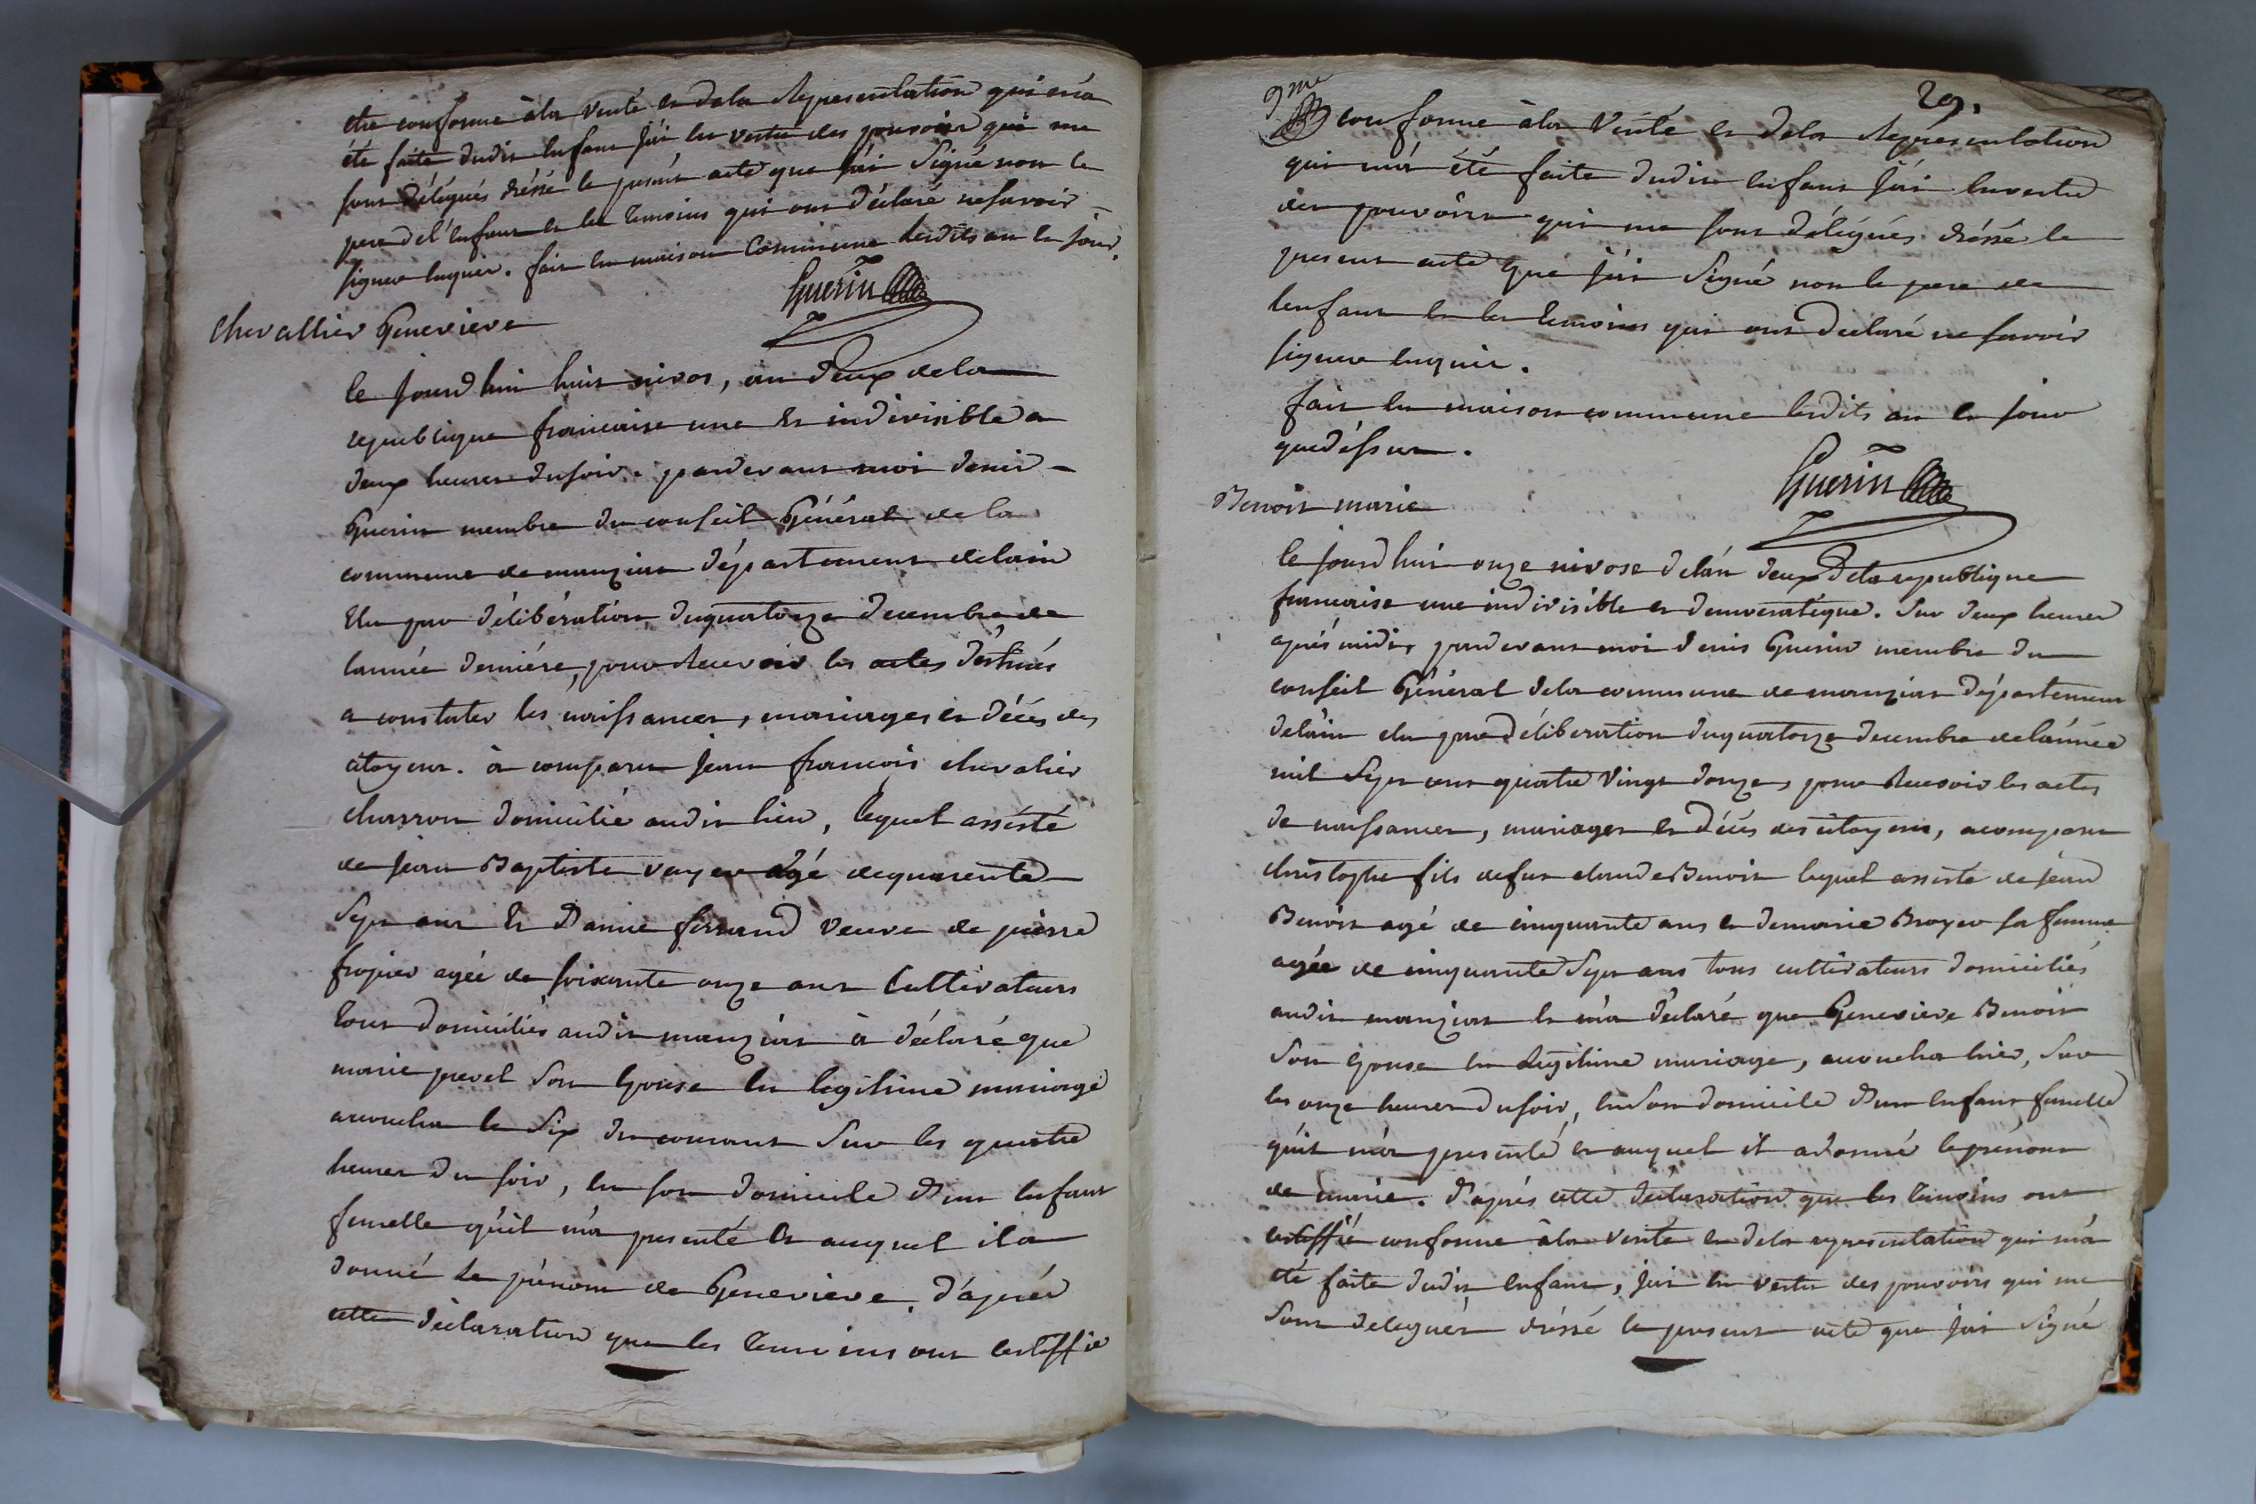 etre conforme à la verité et de la Representation qui m'a
été faite dudit enfant J'ai en vertu des pouvoirs qui me
sont délégués dréssé le présent acte que J'ai Signé non le
pere de l'enfant et les temoins qui ont déclaré ne savoir
signer enquis. fait en maison Commune lesdits an et jour.
Guerin
Chevallier Genevieve
le Jourd'hui huit nivos, an deux de la
republique francaise une et indivisible a
deux heures du soir. pardevant moi denis
Guerin membre du conseil Général de la
commune de manziat département delain
Elu par délibération du quatorze decembre de
lannée derniére, pour Recevoir les actes déstinés
a constater les naissances, mariages et décés des
citoyens. à comparu Jean francois chevalier
charron domicilié audit lieu, lequel assisté
de Jean Baptiste voyer agé de quarente
Sept ans et Danne ferrand veuve de pierre
frogier agée de soixante onze ans Cultivateurs
tous domiciliés audit manziat à déclaré que
marie prevel son Epouse en legitime mariage
accoucha le Six du courant Sur les quatre
heures du soir, en son domicile d'un enfant
femelle qu'il m'a presenté et auquel il a
donné le prénom de Genevieve. d'aprés
cette déclaration que les temoins ont certiffié
9me
29.
conforme à la Verité et de la Représentation
qui m'a été faite dudit enfant J'ai en vertu
des pouvoirs qui me sont délégués dréssé le
present acte que J'ai Signé non le pere de
lenfant et les temoins qui ont declaré ne savoir
signer enquis.
fait en maison commune lesdits an et jour
que déssus.
Guerin
Benoit marie
le Jourd'hui onze nivose de lán deux de la republique
francaise une indivisible et democratique. Sur deux heures
aprés midi, pardevant moi denis Guerin membre du
conseil Général de la commune de manziat département
de láin elu par déliberation du quatorze decembre de lánnée
mil Sept cent quatre Vingt douze, pour Recevoir les actes
de naissances, mariages et décés des citoyens, a comparu
christophe fils de fut claude Benoit lequel assisté de Jean
Benoit agé de cinquante ans et de marie Broyer sa femme
agée de cinquante Sept ans tous cultivateurs domiciliés
audit manziat et m'a déclaré que Genevieve Benoit
Son Epouse en légitime mariage, accoucha hier, Sur
les onze heures du soir, en son domicile d'un enfant femelle
qu'il m'a presenté et auquel il a donné le prénom
de marie. d'aprés cette declaration que les temoins ont
certiffié conforme à la verité et de la representation qui m'a
été faite dudit enfant, jai en vertu des pouvoirs qui me
Sont delegués dréssé le present acte que jai Signé